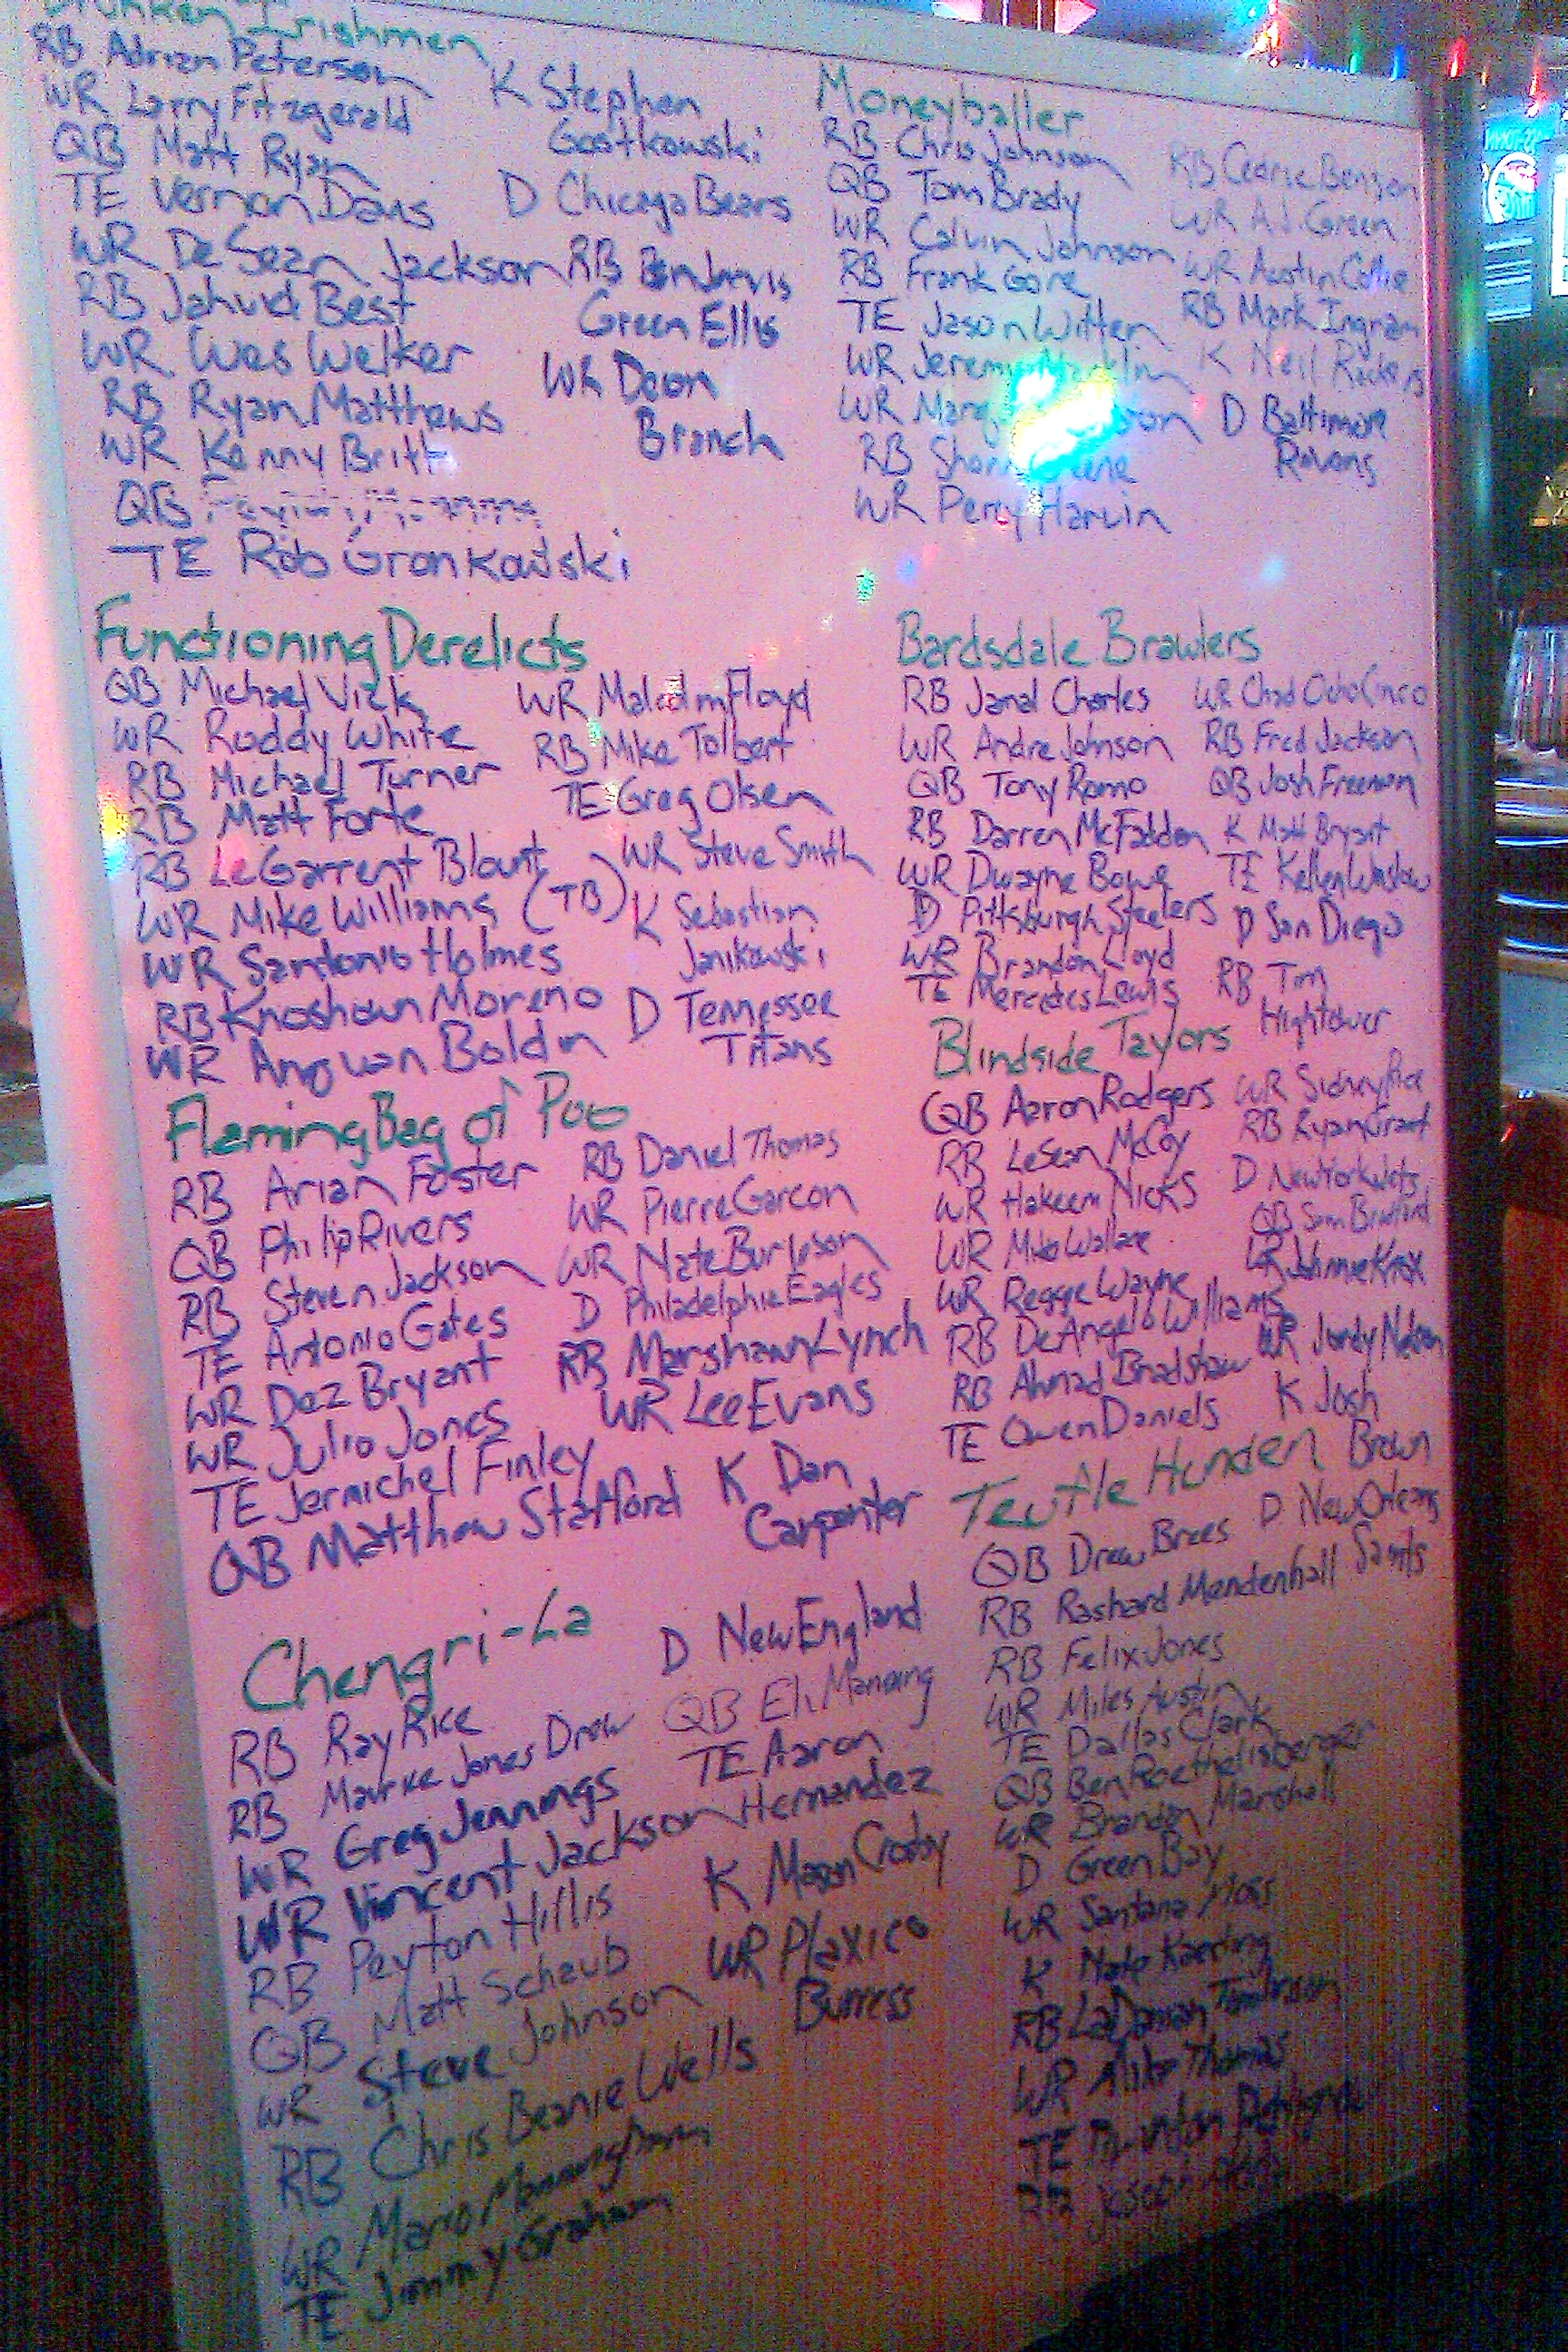 Drunken Irishmen
RB Adrian Peterson
WR Larry Fitzgerald
QB Matt Ryan
TE Vernon Davis
WR DeSean Jackson
RB Jahvid Best
WR Wes Welker
RB Ryan Matthews
WR Kenny Britt
QB
TE Rob Gronkowski
K Stephen
Gostkowski
D Chicago Bears
RB BenJarvis
Green Ellis
WR Deon
Branch
Moneyballer
RB Chris Johnson
QB Tom Brady
WR Calvin Johnson
RB Frank Gore
TE Jason Witten
WR Jeremy
WR
RB
WR Percy Harvin
RB Cedric Benson
WR A.J. Green
WR Austin Collie
RB Mark Ingram
K Neil Rackers
D Baltimore
Ravens
Functioning Derelicts
QB Michael Vick
WR Roddy White
RB Michael Turner
RB Matt Forte
RB LeGarrent Blount
WR Mike Williams (TB)
WR Santonio Holmes
RB Knoshown Moreno
WR Anquan Boldin
WR Malcolm Floyd
RB Mike Tolbert
TE Greg Olsen
WR Steve Smith
K Sebastian
Janikowski
D Tennessee
Titans
Bardsdale Brawlers
RB Jamal Charles
WR Andre Johnson
QB Tony Romo
RB Darren McFadden
WR Dwayne Bowe
D Pittsburgh Steelers
WR Brandon Lloyd
TE Mercedes Lewis
WR Chad OchoCinco
RB Fred Jackson
QB Josh Freeman
K Matt Bryant
TE Kellen Winslow
D San Diego
RB Tim
Hightower
Flaming Bag of Poo
RB Arian Foster
QB Philip Rivers
RB Steven Jackson
TE Antonio Gates
WR Dez Bryant
WR Julio Jones
TE Jermichel Finley
QB Matthew Stafford
RB Daniel Thomas
WR Pierre Garcon
WR Nate Burleson
D Philadelphia Eagles
RB Marshawn Lynch
WR Lee Evans
K Dan
Carpenter
Blindside Taylors
QB Aaron Rodgers
RB LeSean McCoy
WR Hakeem Nicks
WR Mike Wallace
WR Reggie Wayne
RB DeAngelo Williams
RB Ahmad Bradshaw
TE Owen Daniels
WR Sidney Rice
RB Ryan Grant
D New York Jets
QB Sam Bradford
WR Johnnie Knox
WR Jordy Nelson
K Josh
Brown
Chengri-La
RB Ray Rice
RB Maurice Jones Drew
WR Greg Jennings
WR Vincent Jackson
RB Peyton Hillis
QB Matt Schaub
WR Steve Johnson
RB Chris Beanie Wells
WR Mario Manningham
TE Jimmy Graham
D New England
QB Eli Manning
TE Aaron
Hernandez
K Mason Crosby
WR Plaxico
Burress
QB Drew Brees
RB Rashard Mendenhall
RB Felix Jones
WR Miles Austin
TE Dallas Clark
QB Ben Roethelisberger
WR Brandon Marshall
D Green Bay
WR Santana Moss
K Nate Kaeding
RB LaDanian Tomlinson
WR Mike Thomas
TE Brandon Pettigrew
RB Joseph
D New Orleans
Saints